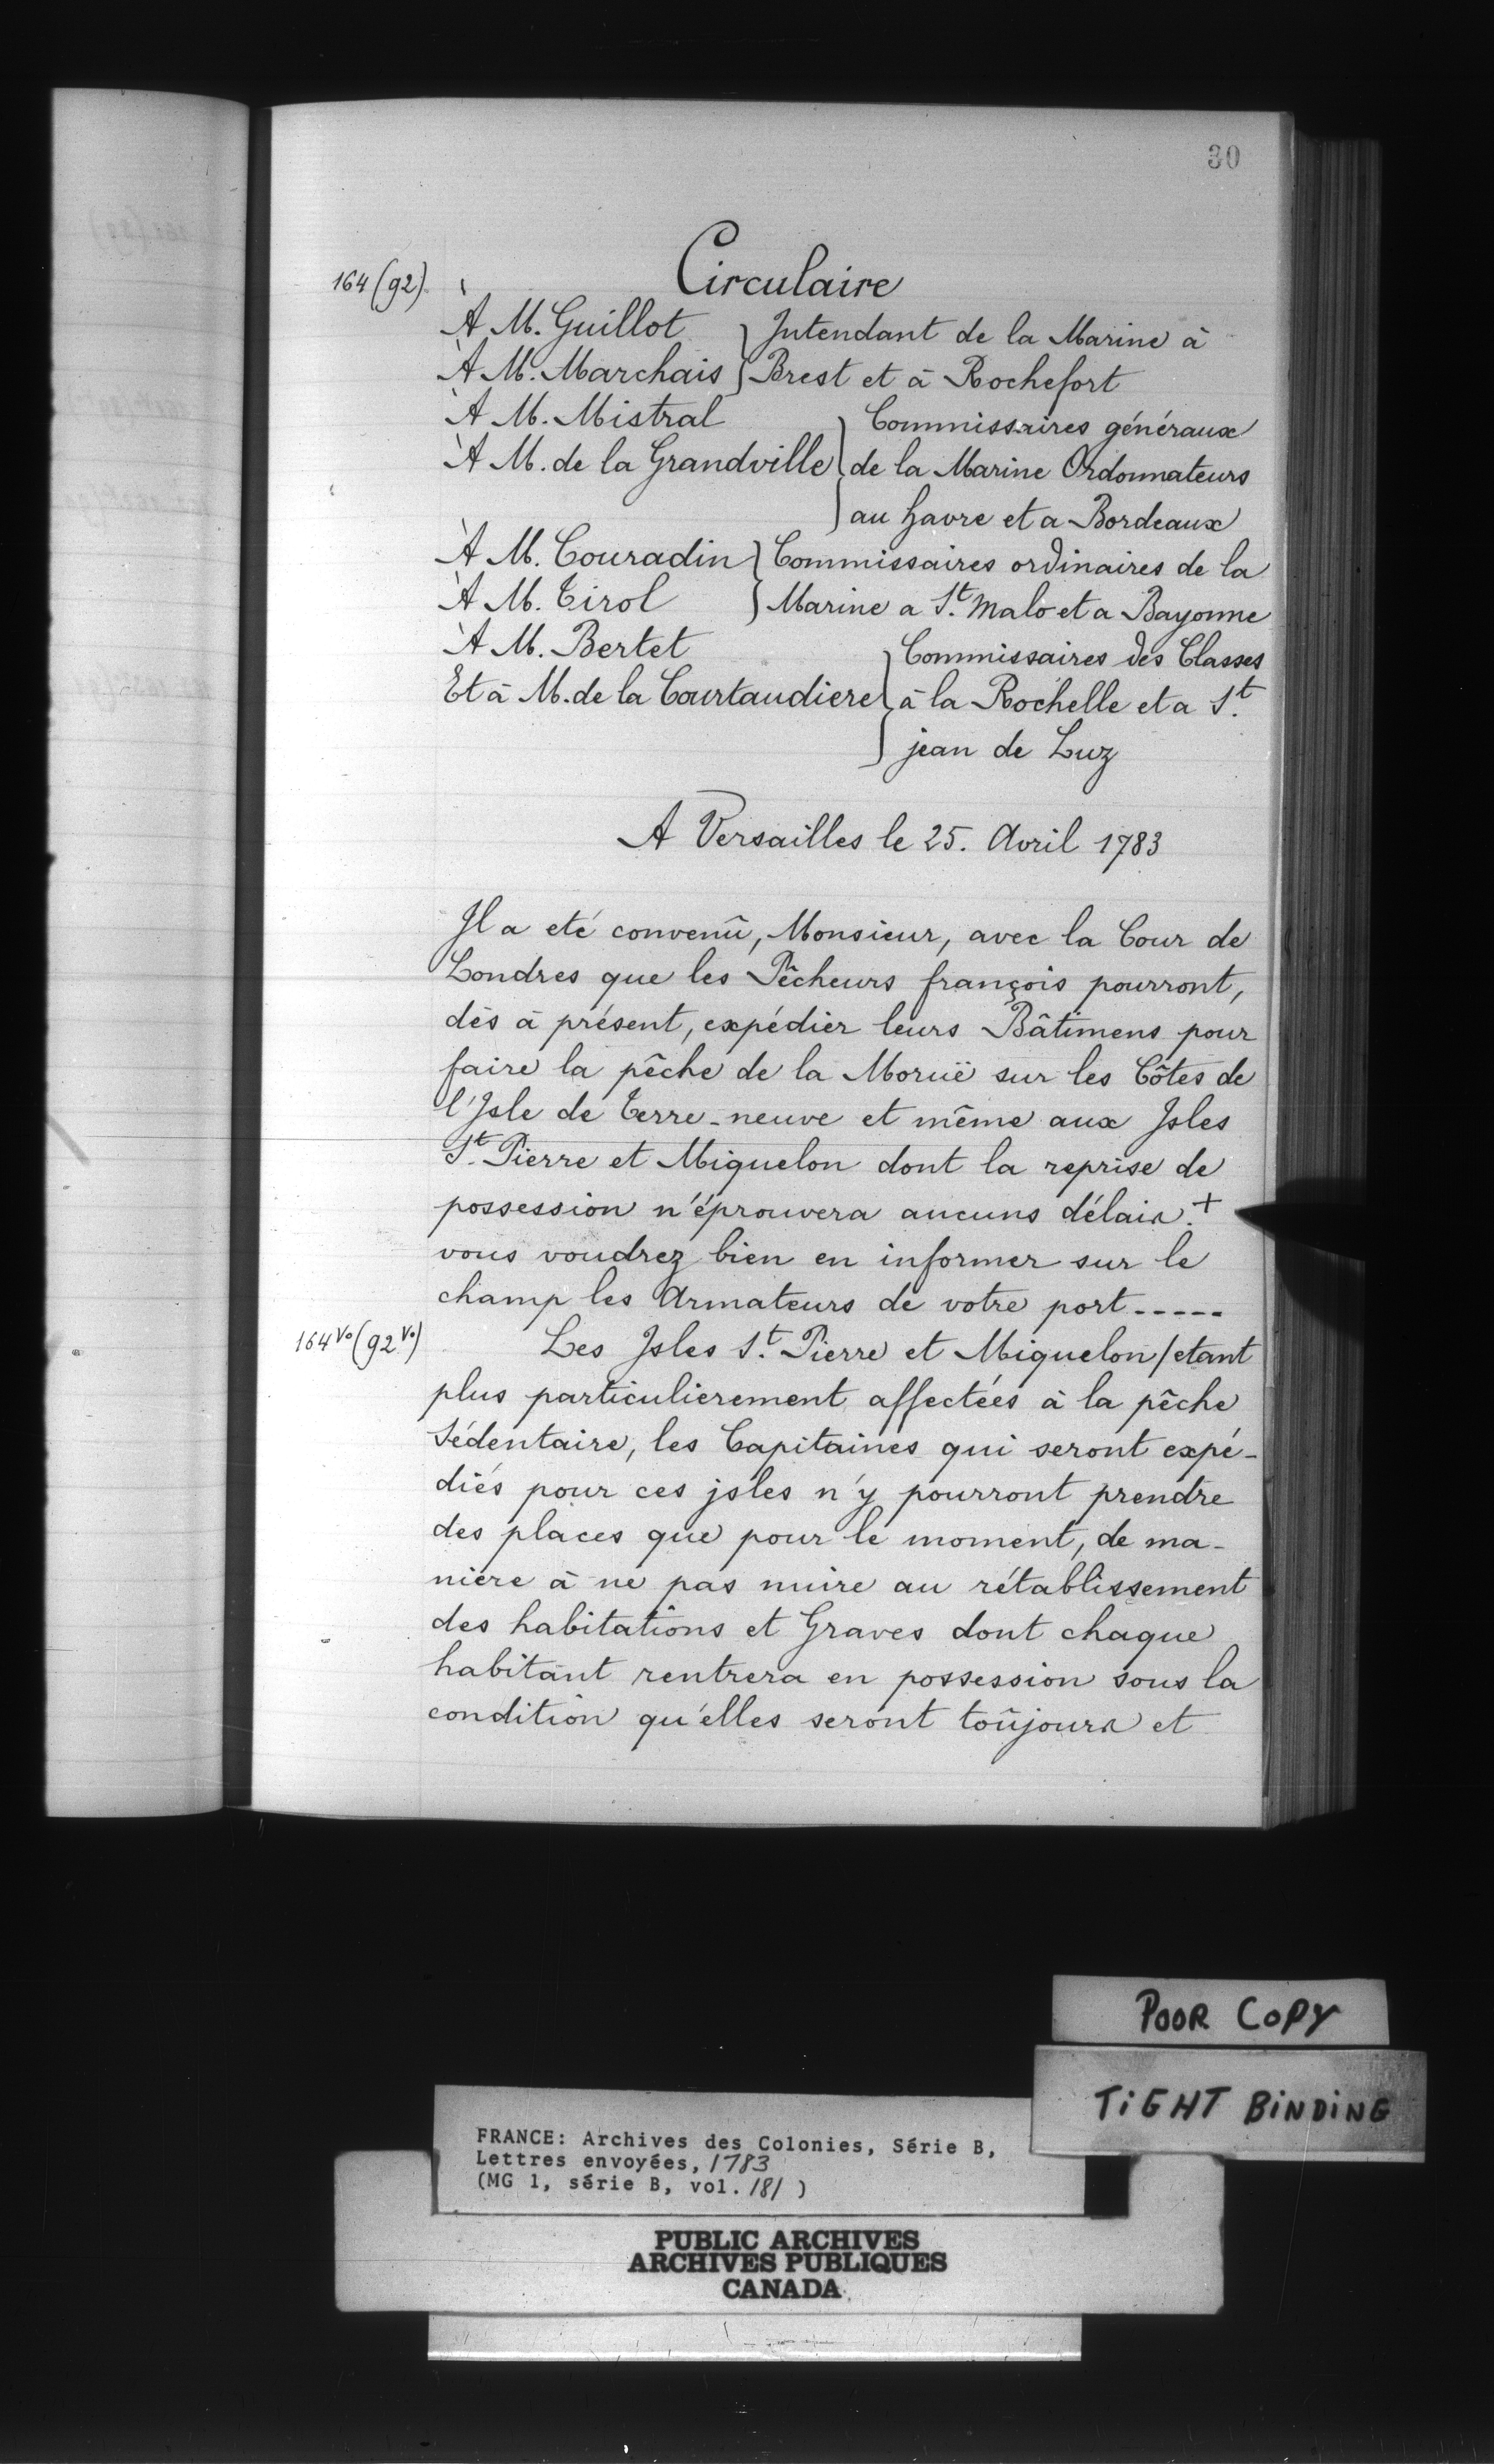 30
Circulaire
164 (92)
À M. Guillot } Intendant de la Marine à
À M. Marchais } Brest et à Rochefort
À M. Mistral } Commissaires généraux
À M. de la Grandville } de la Marine Ordonnateurs
} au havre et a Bordeaux
À M. Couradin } Commissaires ordinaires de la
À M. Tirol } Marine a St. Malo et a Bayonne
À M. Bertet } Commissaires des Classes
Et à M. de la Courtaudiere } à la Rochelle et a St.
} jean de Luz
A Versailles le 25. Avril 1783
Il a eté convenû, Monsieur, avec la Cour de
Londres que les Pêcheurs françois pourront,
dès à présent, expédier leurs Bâtimens pour
faire la pêche de la Moruë sur les Côtes de
l'Isle de Terre-neuve et même aux Isles
St. Pierre et Miquelon dont la reprise de
possession n'éprouvera aucuns délais. +
vous voudrez bien en informer sur le
champ les Armateurs de votre port -----
164 Vo (92 Vo)
Les Isles St. Pierre et Miquelon / etant
plus particulierement affectées à la pêche
Sédentaire, les Capitaines qui seront expé-
diés pour ces jsles n'y pourront prendre
des places que pour le moment, de ma-
nière à ne pas nuire au rétablissement
des habitations et Graves dont chaque
habitant rentrera en possession sous la
condition qu'elles seront toûjours et
POOR COPY
TIGHT BINDING
FRANCE: Archives des Colonies, Série B,
Lettres envoyées, 1783
(MG 1, série B, vol. 181 )
PUBLIC ARCHIVES
ARCHIVES PUBLIQUES
CANADA